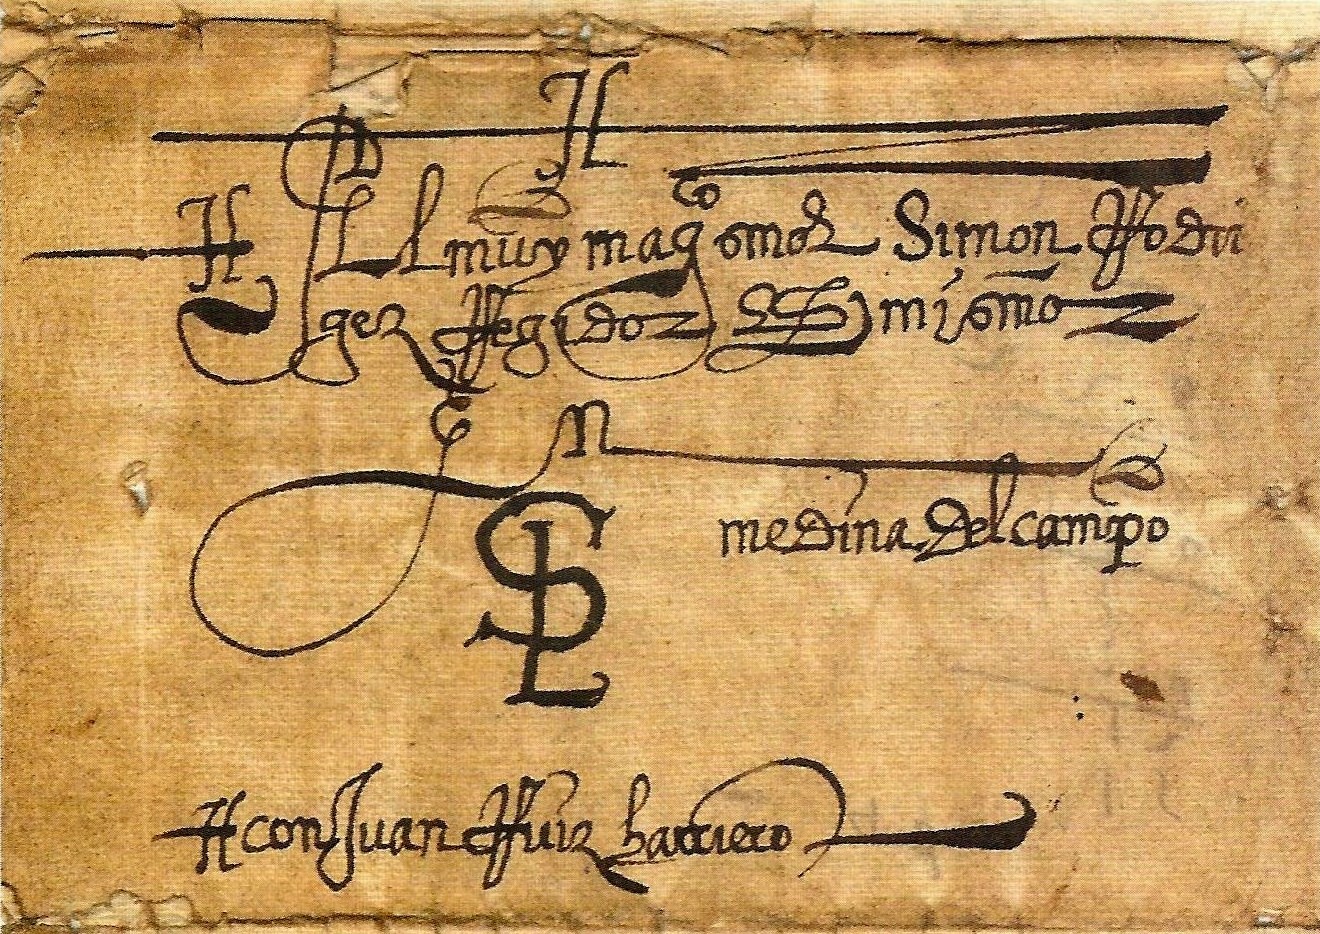 Al muy mag^co señor Simon Rodri
gez Regidor mi señor
En
medina del campo
con Juan Ruiz harriero